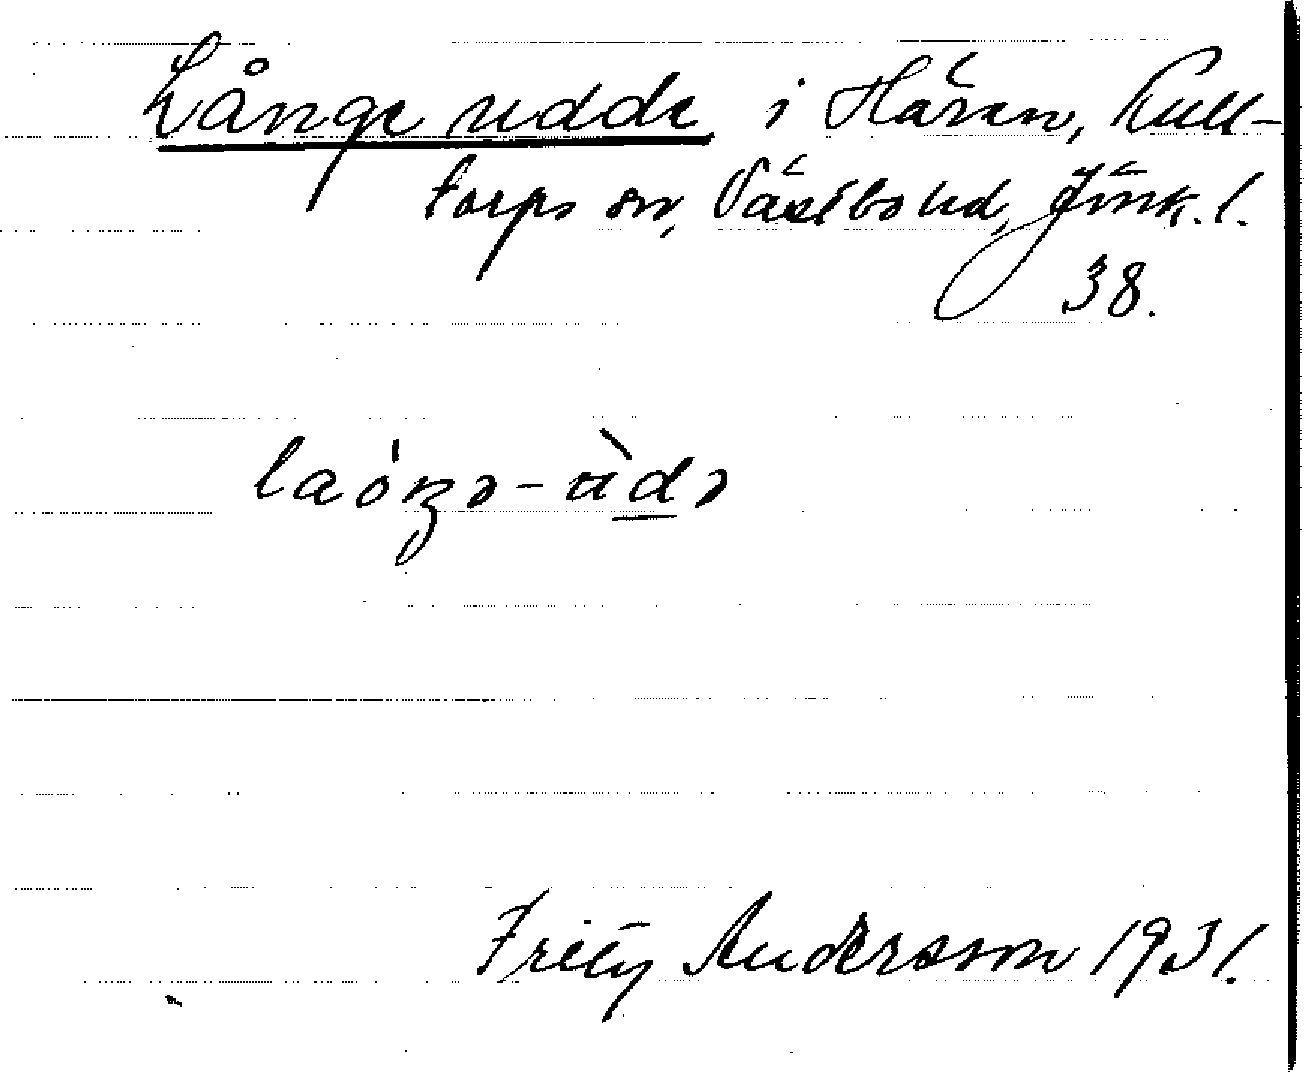 Långe udde i Hären, Kull-
torps sn, Västbo hd, Jönk. l.
38.
laóŋə-ùdə
Fritz Andersson 1931.